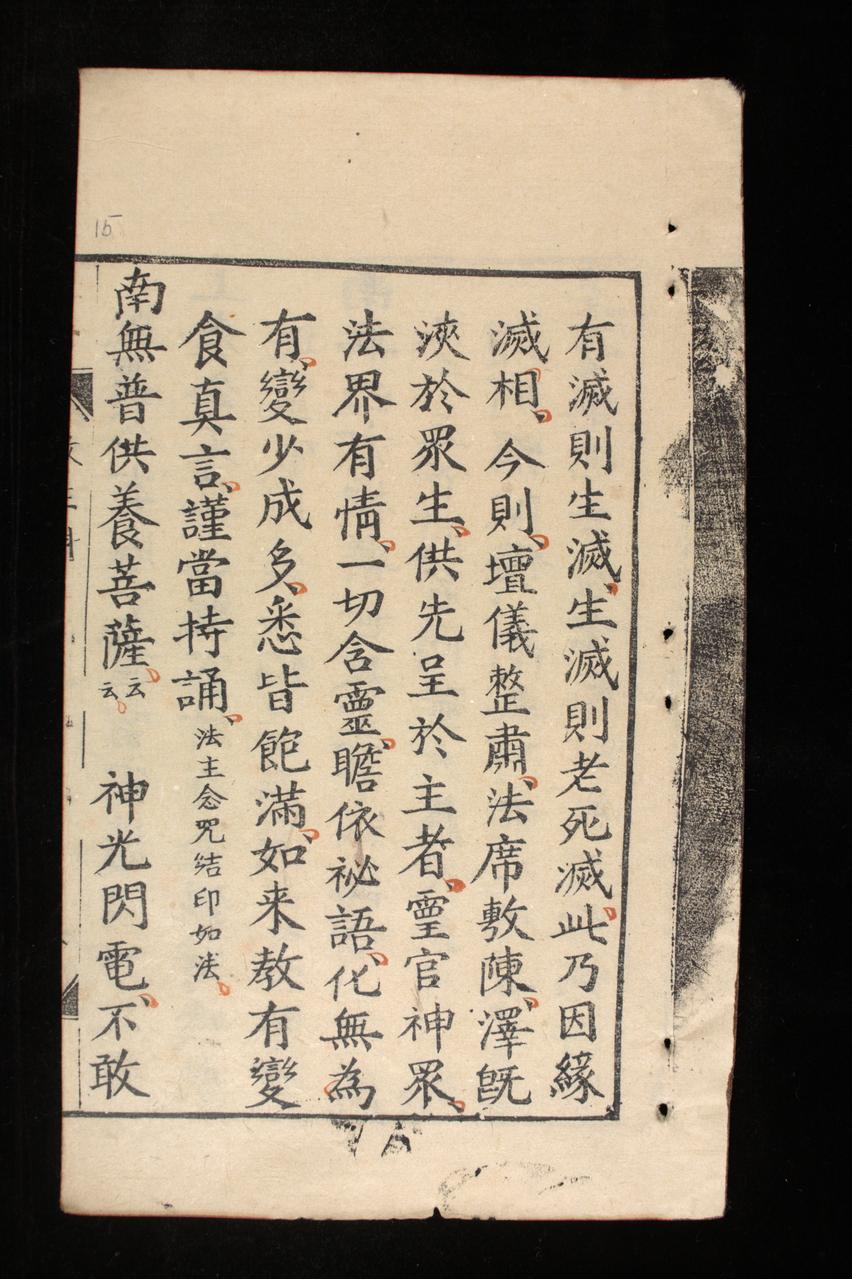 有滅則生滅生滅則老死滅此乃因緣
滅相今則壇儀整肅法席敷陳澤旣
浹於眾生供先呈於主者霊官神眾
法界有情一切含靈瞻依祕語化無為
有變少成多悉皆飽滿如来教有變
食真言謹當持誦法主念咒结印如法
南無普供養菩薩云云 神光閃電不敢
15